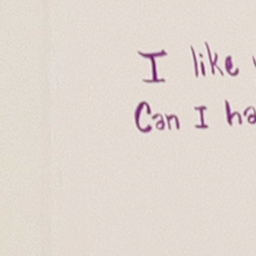 I like
Can I ha